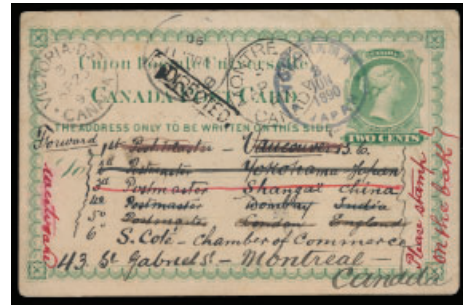 Union Postale Universelle
CANADA POST CARD
THE ADDRESS ONLY TO BE WRITTEN ON THIS SIDE
TWO CENTS
VICTORIA B.C.
CANADA
MONTREAL
CANADA
YOKOHAMA
JUN
1890
JAPAN
Forward 1st Postmaster - Vancouver B.C.
2d Postmaster Yokohama Japan
3d Postmaster Shangai China
4th Postmaster Bombay India
5th Postmaster London England
6th S. Coté - Chamber of Commerce
43 St Gabriel St - Montreal -
Canada
Please stamp
on the back!